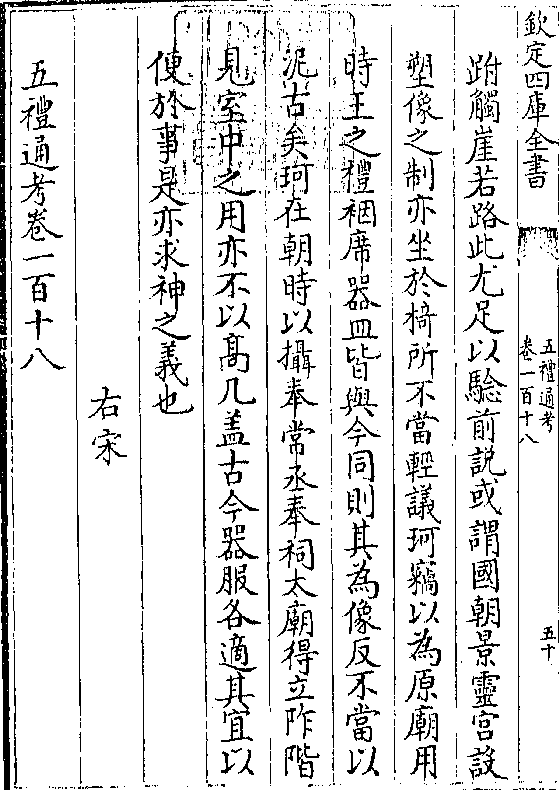 欽定四庫全書
五禮通考
卷一百十八
五十
跗觸崖若路此尤足以驗前説或謂國朝景靈宫設
塑像之制亦坐於椅所不當輕議珂竊以為原廟用
時王之禮裀席器皿皆與今同則其為像反不當以
泥古矣珂在朝時以攝奉常丞奉祠太廟得立阼階
見室中之用亦不以髙几盖古今器服各適其宜以
便於事是亦求神之義也
右宋
五禮通考卷一百十八